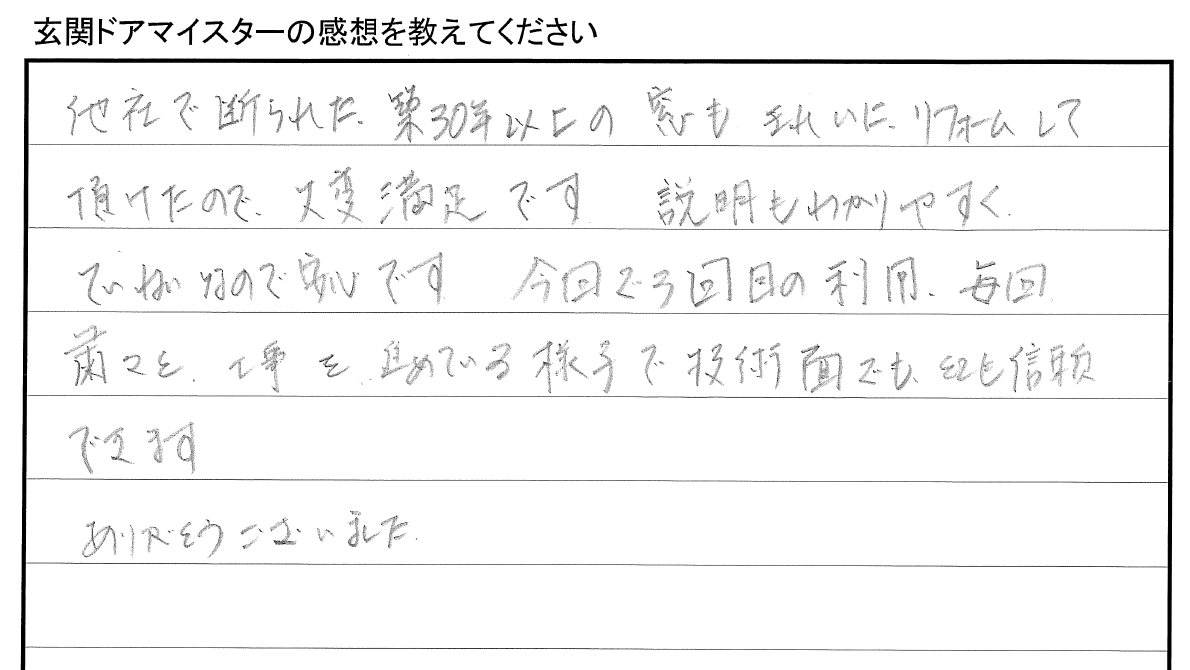 玄関ドアマイスターの感想を教えてください
他社で断られた、築30年以上の窓もきれいに、リフォームして
頂けたので、大変満足です。説明もわかりやすく、
ていねいなので安心です。今回で3回目の利用、毎回
粛々と、工事を、進めている様子で技術面でも、とても信頼
できます
ありがとうございました。